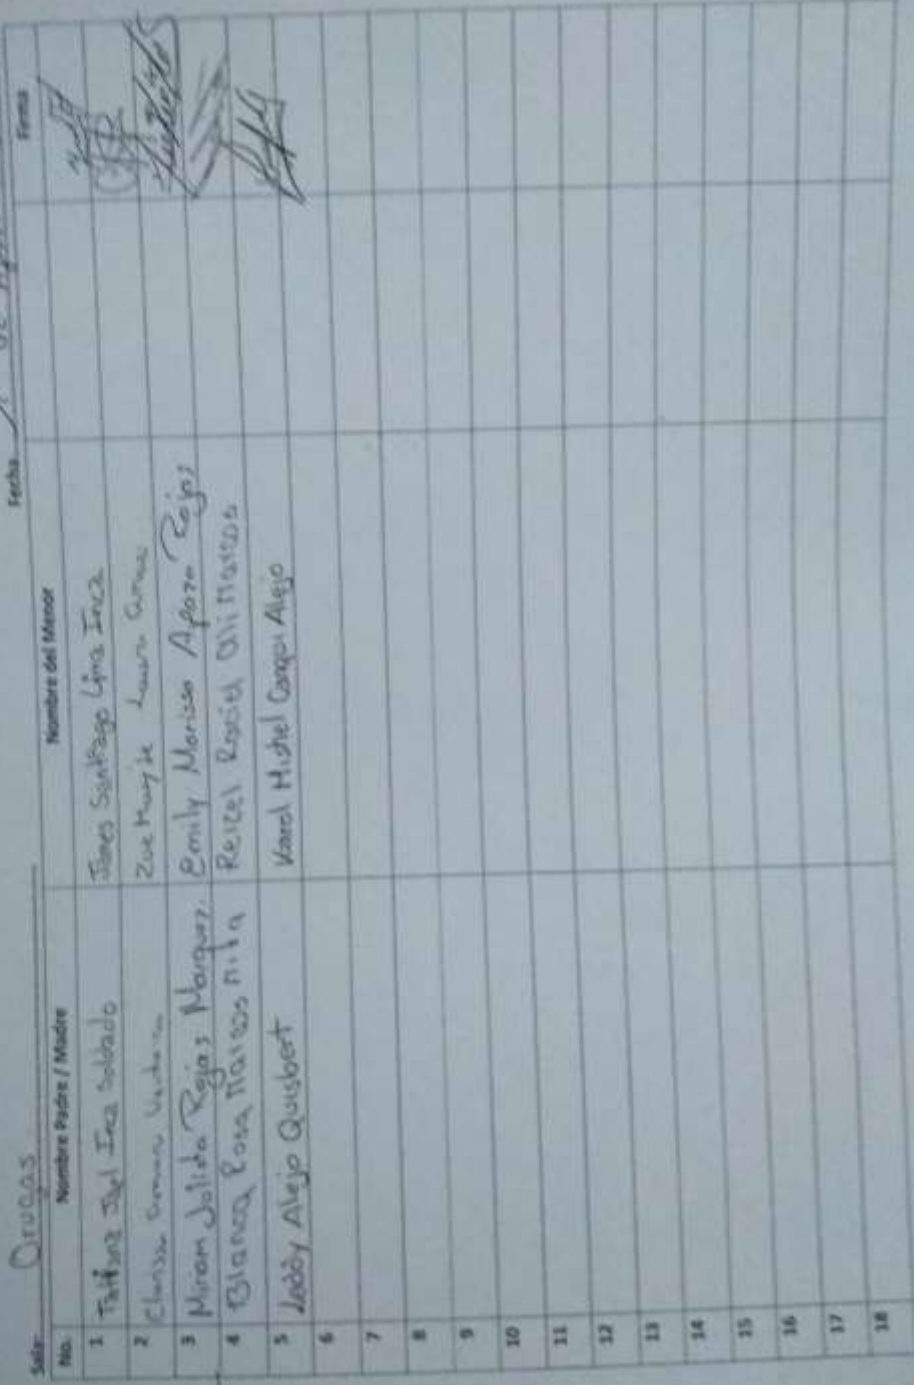 Sala: Orugas Fecha
No. Nombre Padre / Madre Nombre del Menor Firma
1 Tatiana Inca Soldado James Santiago Lima Inca
2 Clarissa Zue
3 Miriam Julieta Rojas Marquez. Emily Marisso Apaza Rojas
4 Blanca Rosa Marcos Mita Reizel Rocid Oli Marcos
5 Leddy Alejo Quisbert Karol Mishel Canqui Alejo
6
7
8
9
10
11
12
13
14
15
16
17
18